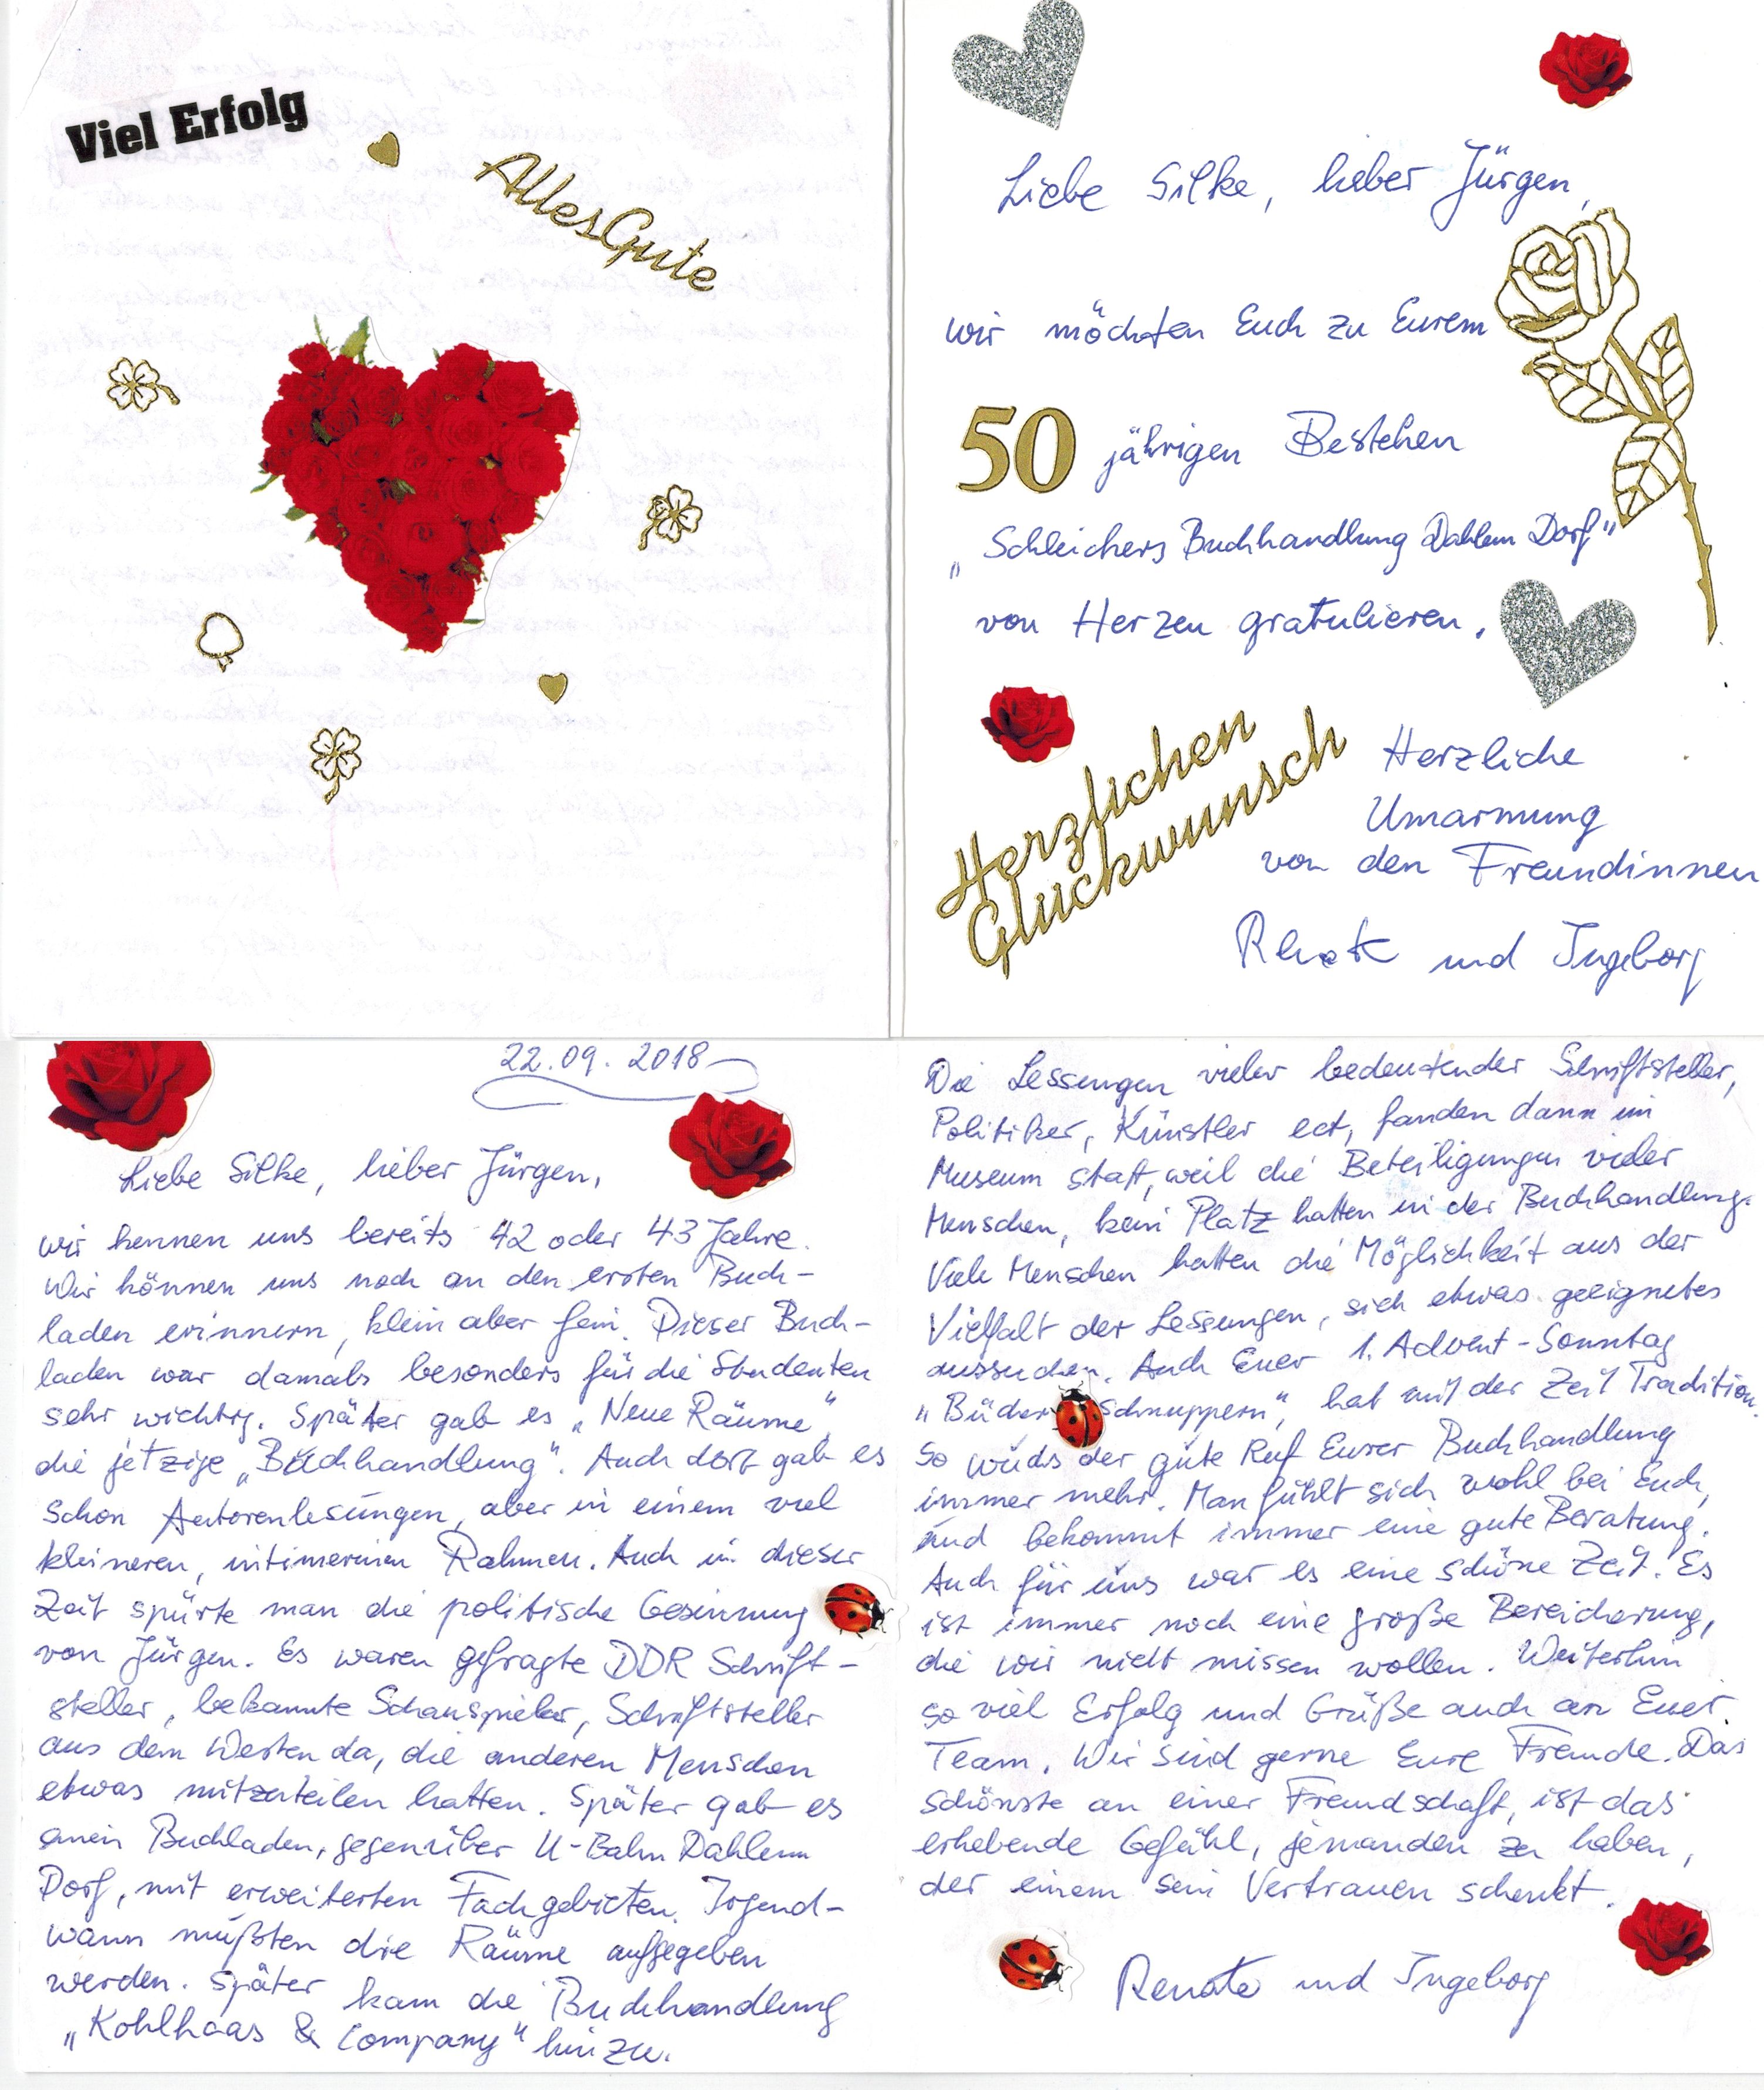 Viel Erfolg
Alles Gute
Liebe Silke, lieber Jürgen,
wir möchten Euch zu Eurem
50 jährigen Bestehen
„Schleichers Buchhandlung Dahlem Dorf"
von Herzen gratulieren.
Herzlichen
Glückwunsch
Herzliche
Umarmung
von den Freundinnen
Renate und Ingeborg
22.09.2018
Liebe Silke, lieber Jürgen,
wir kennen uns bereits 42 oder 43 Jahre.
Wir können uns noch an den ersten Buch-
laden erinnern, klein aber fein. Dieser Buch-
laden war damals besonders für die Studenten
sehr wichtig. Später gab es „Neue Räume",
die jetzige „Buchhandlung". Auch dort gab es
schon Autorenlesungen, aber in einem viel
kleineren, Rahmen. Auch in dieser
Zeit spürte man die politische Gesinnung
von Jürgen. Es waren gefragte DDR Schrift-
steller, bekannte Schauspieler, Schriftsteller
aus dem Westen da, die anderen Menschen
etwas mitzuteilen hatten. Später gab es
Buchladen, gegenüber U-Bahn Dahlem
Dorf, mit erweiterten Fachgebieten. Irgend-
wann mußten die Räume aufgegeben
werden. Später kam die Buchhandlung
„Kohlhaas & Company" hinzu.
Die Lessungen vieler bedeutender Schriftsteller,
Politiker, Künstler ect, fanden dann im
Museum statt, weil die Beteiligungen vieler
Menschen, kein Platz hatten in der Buchhandlung.
Viele Menschen hatten die Möglichkeit aus der
Vielfalt der Lessungen, sich etwas geeignetes
aussuchen. Auch Euer 1. Advent-Sonntag
„Bücher Schnuppern", hat mit der Zeit Tradition.
So wuchs der gute Ruf Eurer Buchhandlung
immer mehr. Man fühlt sich wohl bei Euch,
und bekommt immer eine gute Beratung.
Auch für uns war es eine schöne Zeit. Es
ist immer noch eine große Bereicherung,
die wir nicht missen wollen. Weiterhin
so viel Erfolg und Grüße auch an Euer
Team. Wir sind gerne Eure Freunde. Das
schönste an einer Freundschaft, ist das
erhebende Gefühl, jemanden zu haben,
der einem sein Vertrauen schenkt.
Renate und Ingeborg